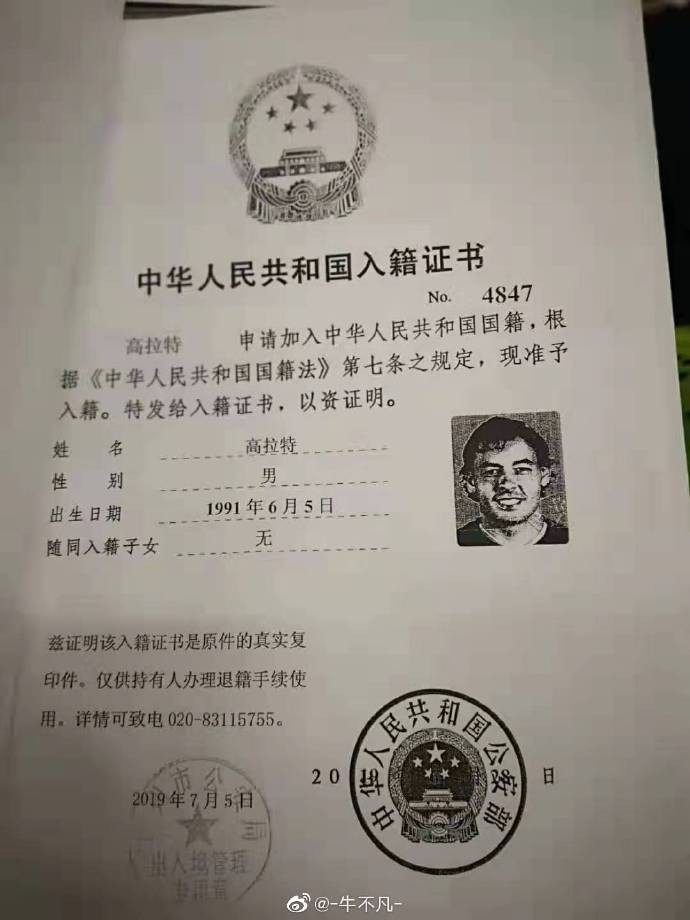 中华人民共和国入籍证书
No. 4847
高拉特 申请加入中华人民共和国国籍,根
据《中华人民共和国国籍法》第七条之规定,现准予
入籍。特发给入籍证书,以资证明。
姓 名 高拉特
性 别 男
出生日期 1991年6月5日
随同入籍子女 无
兹证明该入籍证书是原件的真实复
印件。仅供持有人办理退籍手续使
用。详情可致电 020-83115755。
中华人民共和国公安部
20 日
2019年7月5日
市公 局
出入境管理
专用章
@-牛不凡-